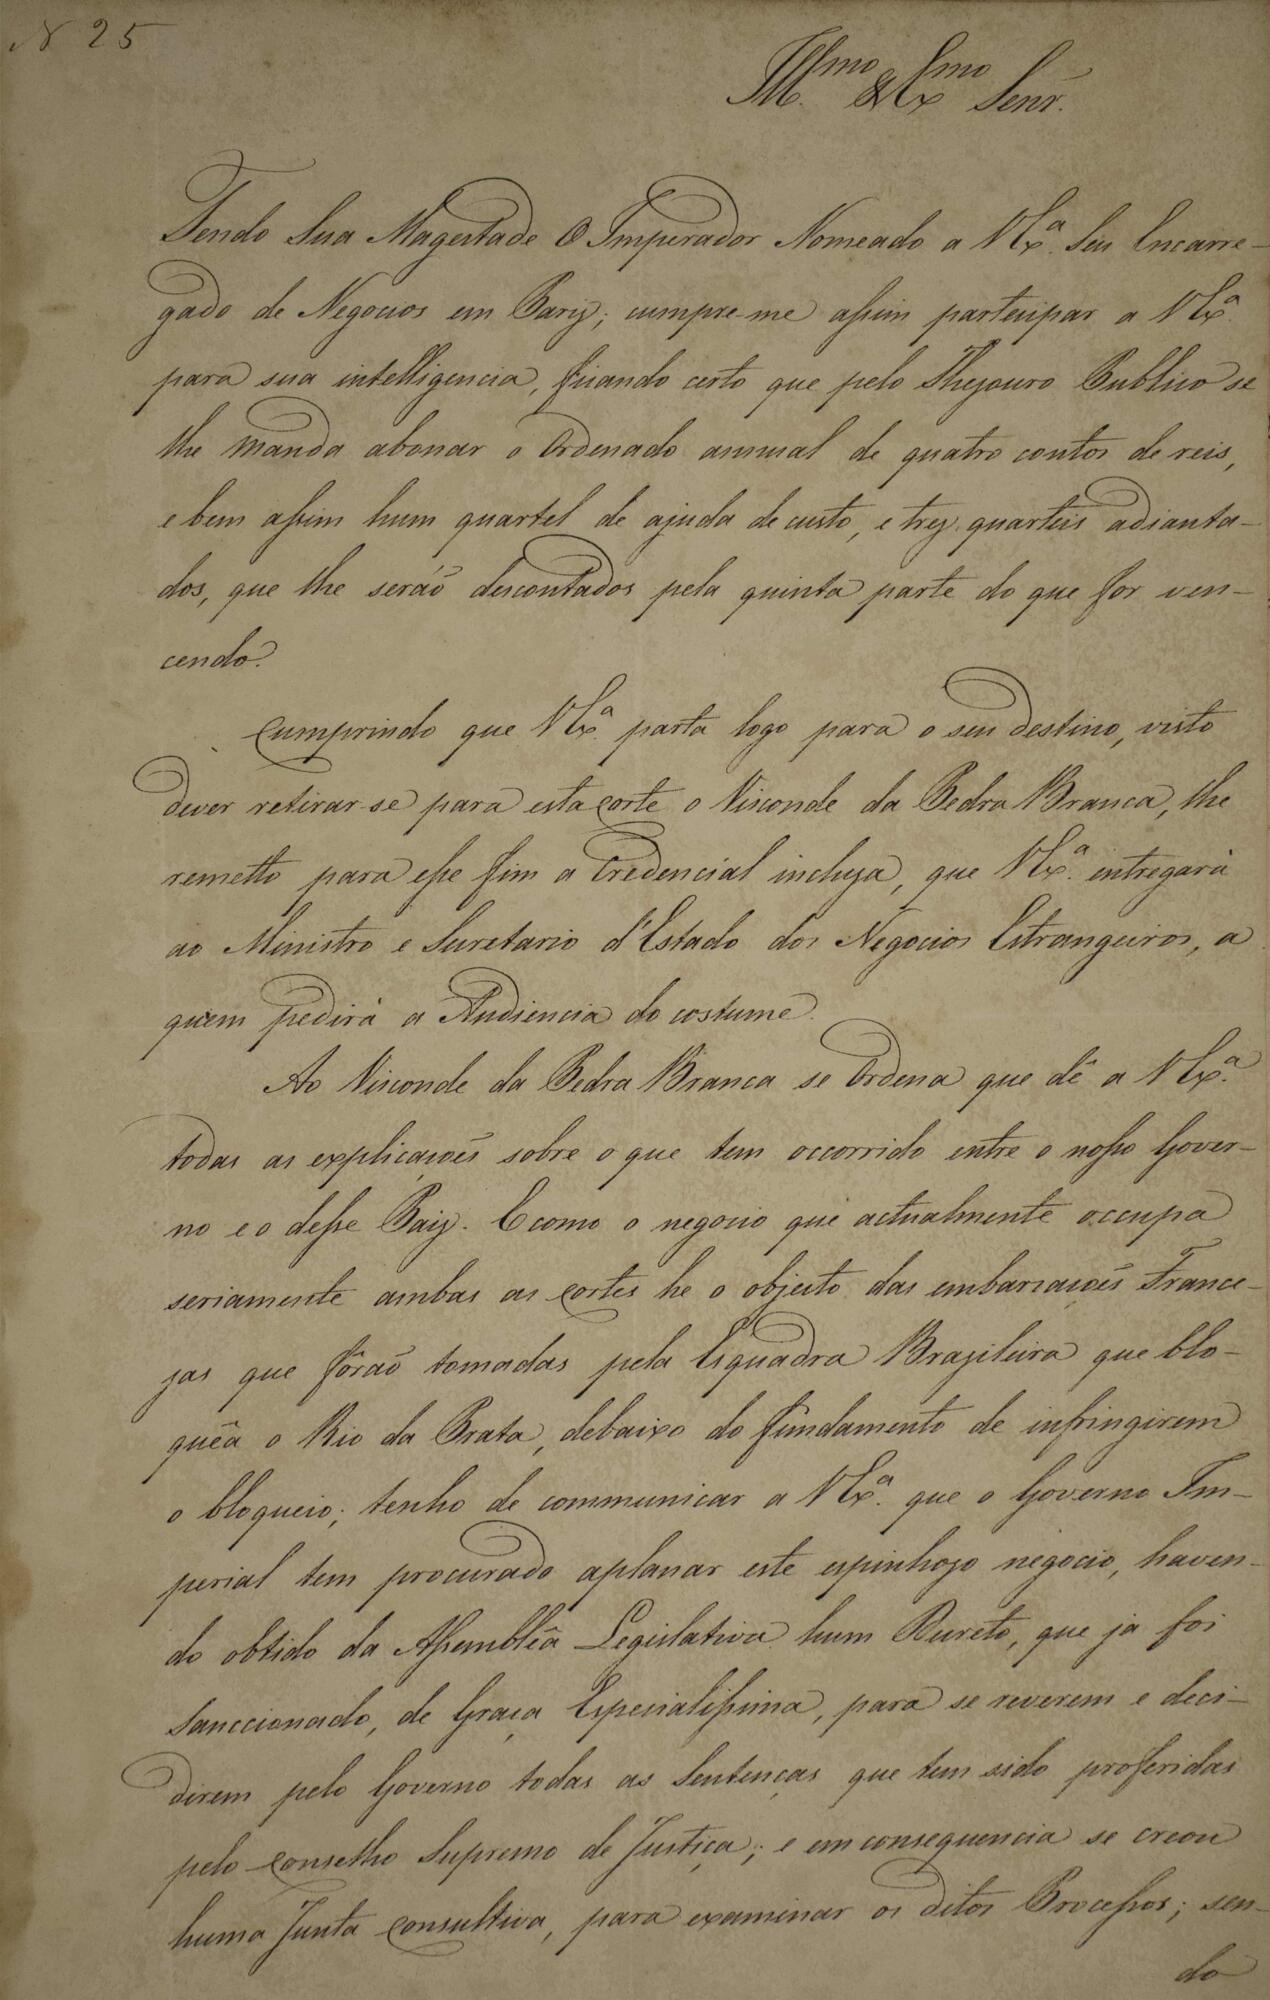 N 25
Ill.mo & Ex.mo Senr.
Tendo Sua Magestade O Imperador Nomeado a V.Ex.a Seu Encarre-
gado de Negocios em Pariz; cumpre-me assim participar a V.Ex.a
para sua intelligencia, ficando certo que pelo Thezouro Publico se
lhe manda abonar o Ordenado annual de quatro contos de reis,
e bem assim hum quartel de ajuda de custo, e trez quarteis adianta-
dos, que lhe seráõ descontados pela quinta parte do que for ven-
cendo.
Cumprindo que V.Ex.a parta logo para o seu destino, visto
dever retirar-se para esta Corte o Visconde da Pedra Branca, lhe
remetto para esse fim a Credencial incluza, que V.Ex.a intregará
ao Ministro e Secretario d'Estado dos Negocios Estrangeiros, a
quem pedirá a Audiencia do costume.
Ao Visconde da Pedra Branca se Ordena que dê a V.Ex.a
todas as explicaçoẽs sobre o que tem occorrido entre o nosso Gover-
no e o desse Paiz. E como o negocio que actualmente occupa
seriamente ambas as Cortes he o objecto das embarcaçoẽs France-
zas que fôraõ tomadas pela Esquadra Brazileira que blo-
quêa o Rio da Prata, debaixo do fundamento de infringirem
o bloqueio; tenho de communicar a V.Ex.a que o Governo Im-
perial tem procurado aplanar este espinhozo negocio, haven-
do obtido da Assemblêa Legislativa hum Decreto, que ja foi
Sanccionado, de Graça Especialissima, para se reverem e deci-
direm pelo Governo todas as Sentenças que tem sido proferidas
pelo Conselho Supremo de Justiça; e em consequencia se creou
huma Junta Consultiva, para examinar os ditos Processos; sen-
do